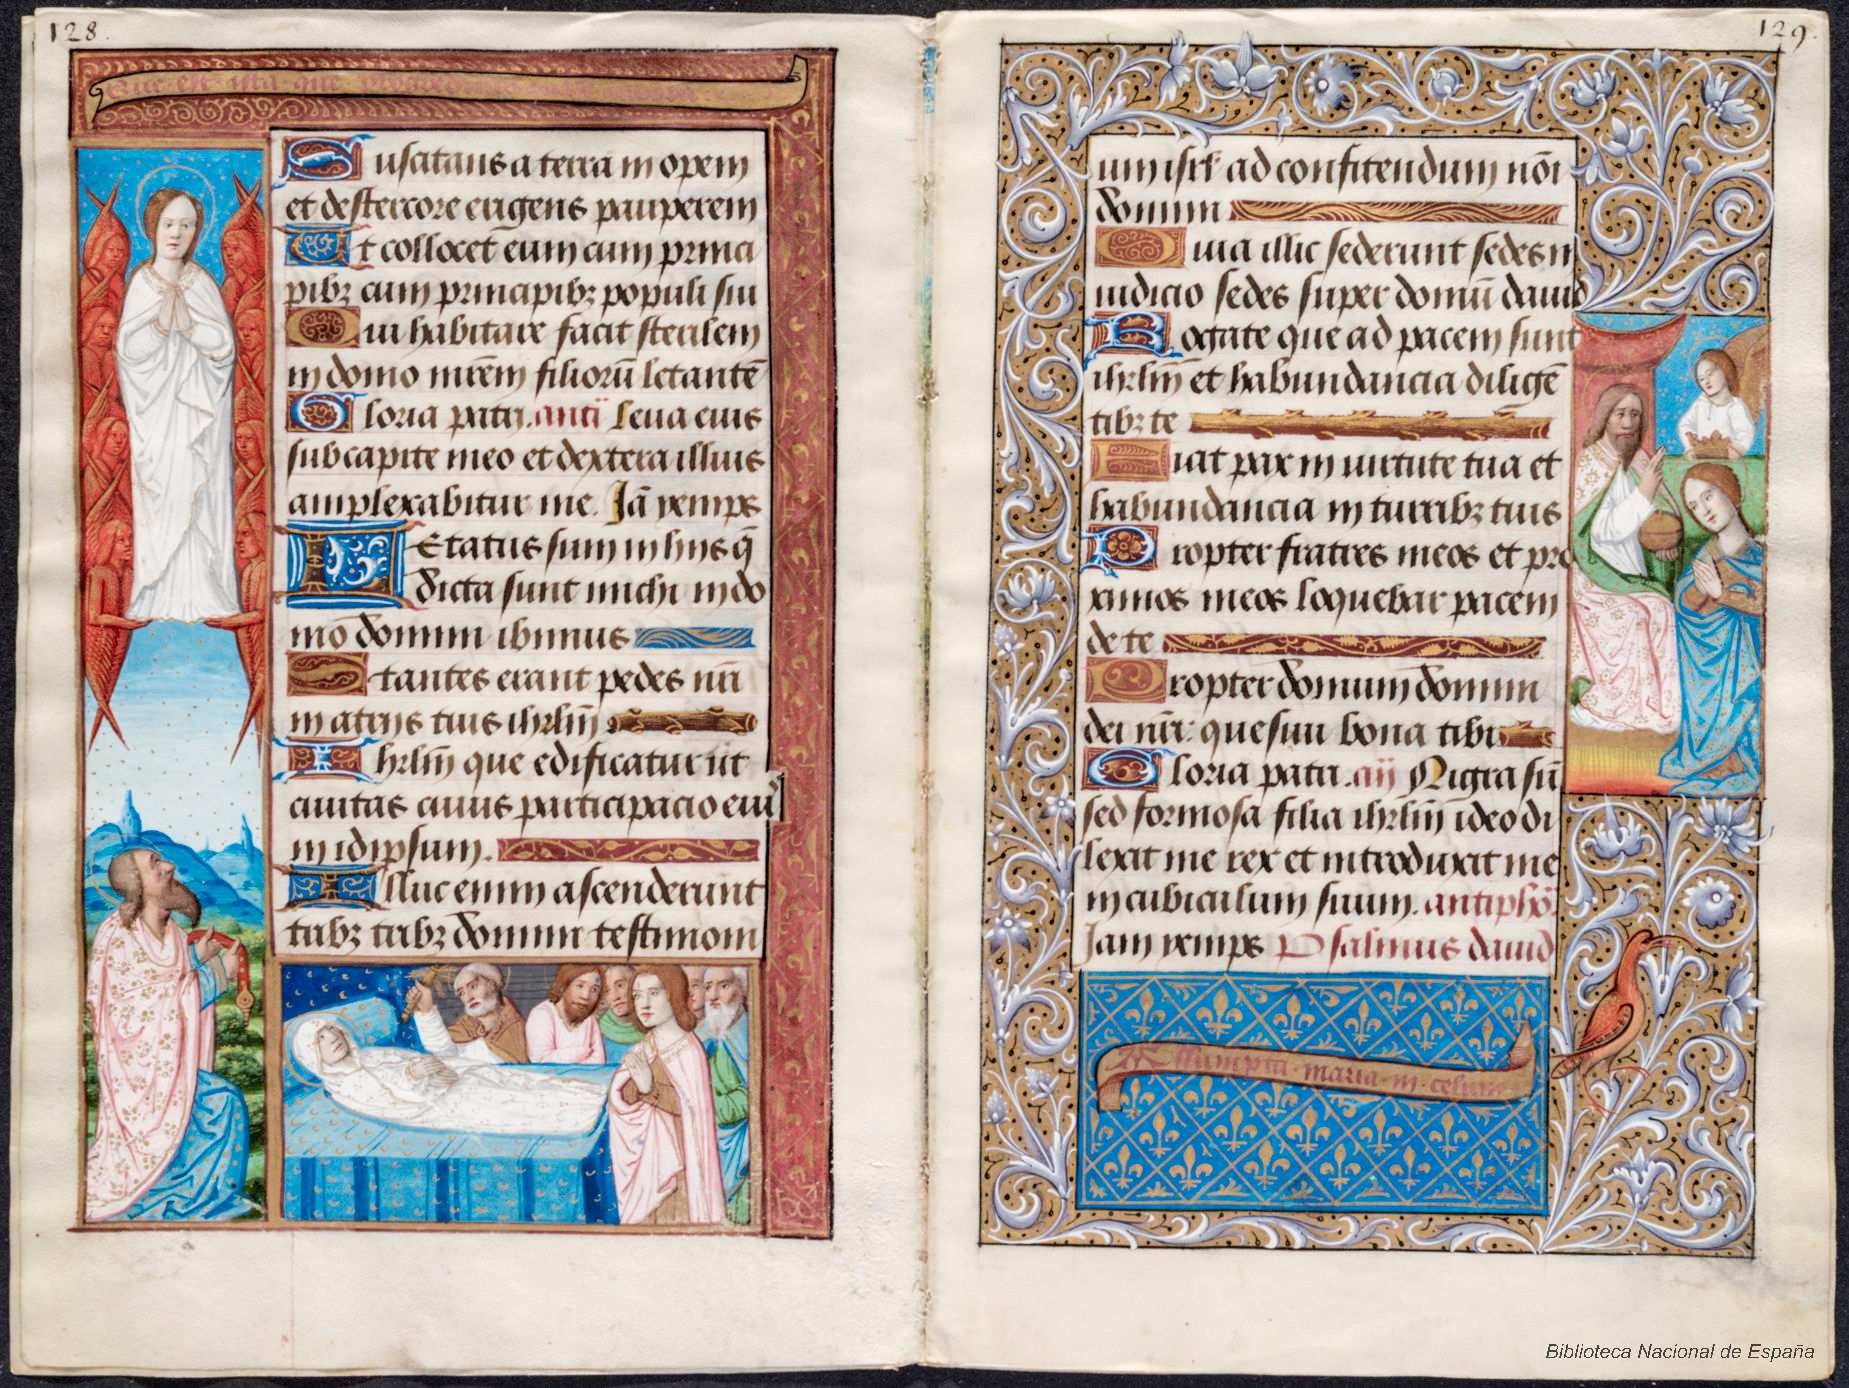 128.
que est ista que
Suscitans a terra in opem
et de stercore erigens pauperem
Et collocet eum cum princi
pibꝫ cum principibꝫ populi sui
Qui habitare facit sterilem
in domo mrēm filiorū letantē
Gloria patri. antī Leva eius
sub capite meo et dextera illius
amplexabitur me. Jā yemps
Letatus sum in hiis q̄
dicta sunt michi in do
mō domini ibimus
Stantes erant pedes nr̄i
in atriis tuis ihrlm̄
Ihrlm̄ que edificatur ut
civitas cuius participacio eiꝰ
in idipsum.
Illuc enim ascenderunt
tribꝫ tribꝫ domini testimoni
129.
um isrl̄ ad confitendum nōi
domini
Quia illic sederunt sedes in
iudicio sedes super domū david
Rogate que ad pacem sunt
ihrlm̄ et habundancia diligē
tibꝫ te
Fiat pax in virtute tua et
habundancia in turribꝫ tuis
Propter fratres meos et pro
ximos meos loquebar pacem
de te
Propter domum domini
dei nr̄i quesivi bona tibi
Gloria patri. añ Nigra sū
sed formosa filia ihrlm̄ ideo di
lexit me rex et introduxit me
in cubiculum suum. antiphō.
Jam yemps Psalmus david
Assumpta maria in celum
Biblioteca Nacional de España